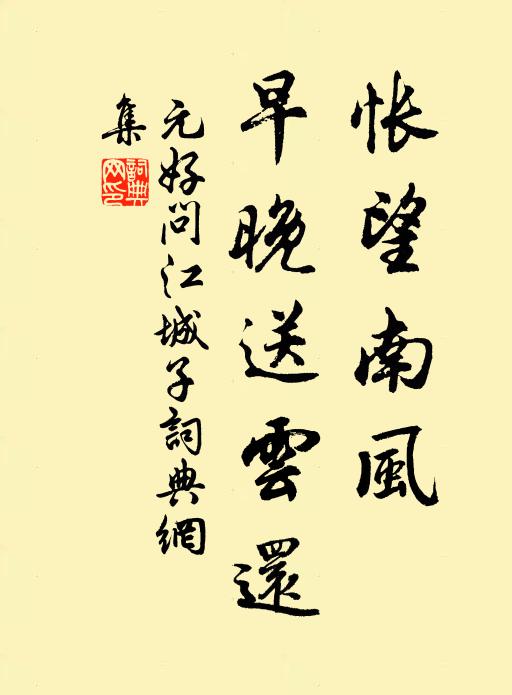 悵望南風
早晚送雲還
元好問江城子詞典網
集
詞典網印